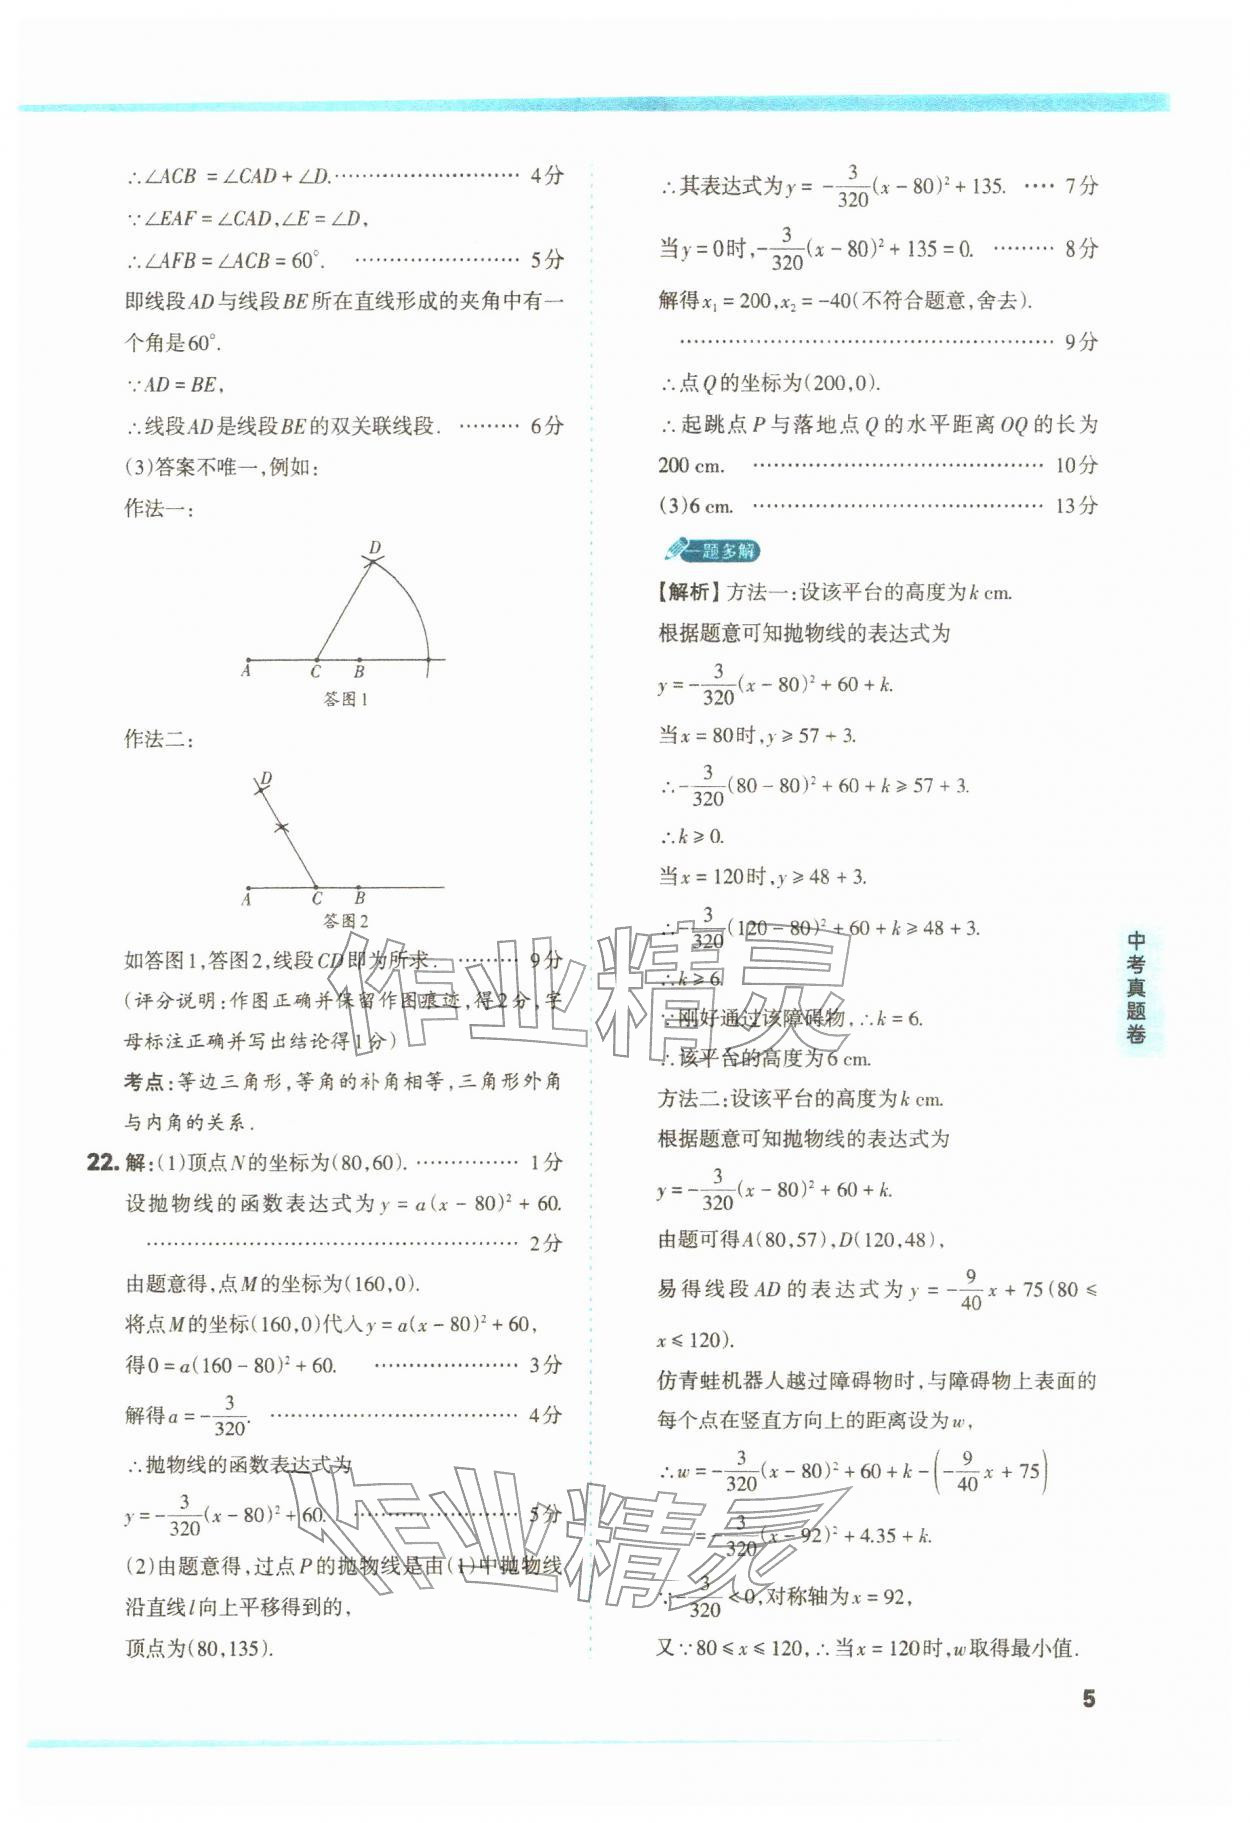 ∴∠ACB = ∠CAD + ∠D. ………………………… 4分
∵∠EAF = ∠CAD,∠E = ∠D,
∴∠AFB = ∠ACB = 60°. …………………… 5分
即线段AD与线段BE所在直线形成的夹角中有一
个角是60°.
∵AD = BE,
∴线段AD是线段BE的双关联线段. ……… 6分
(3)答案不唯一,例如:
作法一:
D
A C B
答图1
作法二:
D
A C B
答图2
如答图1,答图2,线段CD即为所求. ……… 9分
(评分说明:作图正确并保留作图痕迹,得2分,字
母标注正确并写出结论得1分)
考点:等边三角形,等角的补角相等,三角形外角
与内角的关系.
22.解:(1)顶点N的坐标为(80,60). …………… 1分
设抛物线的函数表达式为y = a(x - 80)² + 60.
……………………………………………… 2分
由题意得,点M的坐标为(160,0).
将点M的坐标(160,0)代入y = a(x - 80)² + 60,
得0 = a(160 - 80)² + 60. ………………… 3分
解得a = -3/320. ……………………………… 4分
∴抛物线的函数表达式为
y = -3/320(x - 80)² + 60. …………………… 5分
(2)由题意得,过点P的抛物线是由(1)中抛物线
沿直线l向上平移得到的,
顶点为(80,135).
∴其表达式为y = -3/320(x - 80)² + 135. ···· 7分
当y = 0时,-3/320(x - 80)² + 135 = 0. ……… 8分
解得x₁ = 200,x₂ = -40(不符合题意,舍去).
……………………………………………… 9分
∴点Q的坐标为(200,0).
∴起跳点P与落地点Q的水平距离OQ的长为
200 cm. …………………………………… 10分
(3)6 cm. …………………………………… 13分
一题多解
【解析】方法一:设该平台的高度为k cm.
根据题意可知抛物线的表达式为
y = -3/320(x - 80)² + 60 + k.
当x = 80时,y ⩾ 57 + 3.
∴-3/320(80 - 80)² + 60 + k ⩾ 57 + 3.
∴k ⩾ 0.
当x = 120时,y ⩾ 48 + 3.
∴-3/320(120 - 80)² + 60 + k ⩾ 48 + 3.
∴k ⩾ 6.
∵刚好通过该障碍物,∴k = 6.
∴该平台的高度为6 cm.
方法二:设该平台的高度为k cm.
根据题意可知抛物线的表达式为
y = -3/320(x - 80)² + 60 + k.
由题可得A(80,57),D(120,48),
易得线段AD的表达式为y = -9/40x + 75(80 ⩽
x ⩽ 120).
仿青蛙机器人越过障碍物时,与障碍物上表面的
每个点在竖直方向上的距离设为w,
∴w = -3/320(x - 80)² + 60 + k - (-9/40x + 75)
= -3/320(x - 92)² + 4.35 + k.
∵-3/320 < 0,对称轴为x = 92,
又∵80 ⩽ x ⩽ 120,∴当x = 120时,w取得最小值.
中考真题卷
5
作业精灵
作业精灵